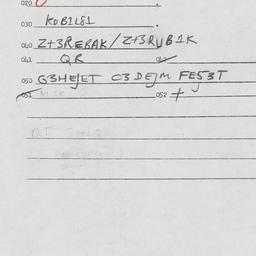 020
030 KOB1L81
040 Z+3REBAK/Z+3RUB1K
041 QR 042
050 G3HEJET C3 DEJM FE53T
051 052 +